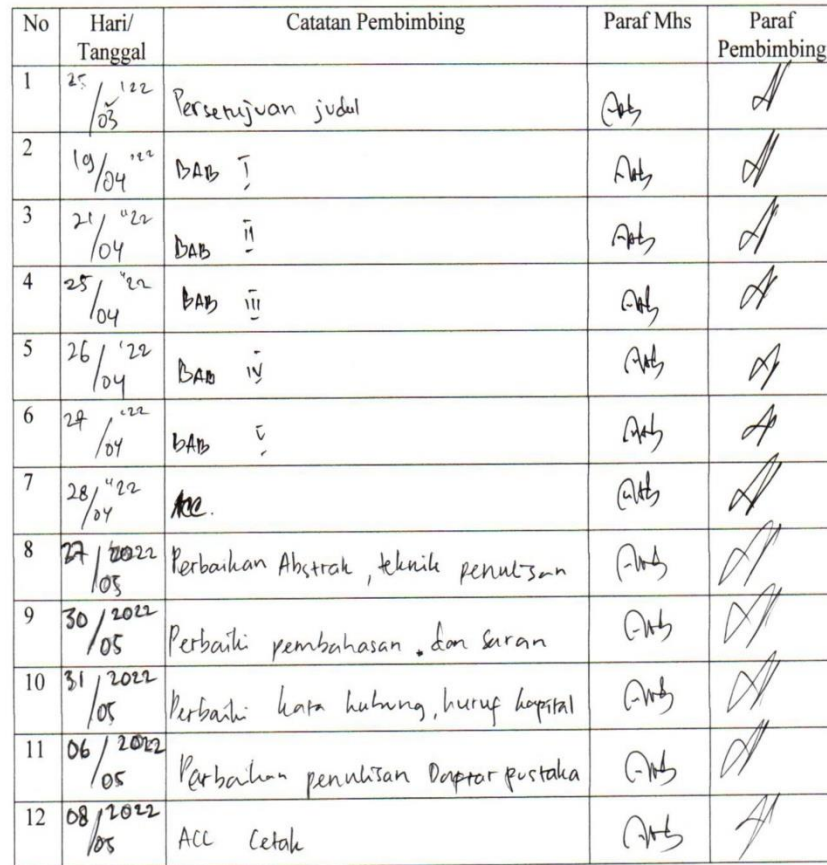 No Hari/ Catatan Pembimbing Paraf Mhs Paraf
Tanggal Pembimbing
1 25/03 '22 Persetujuan judul
2 19/04 '22 BAB I
3 21/04 "22 BAB II
4 25/04 "22 BAB III
5 26/04 '22 BAB IV
6 27/04 '22 BAB V
7 28/04 "22 ACC.
8 27/05 2022 Perbaikan Abstrak, teknik penulisan
9 30/05 2022 Perbaiki pembahasan. dan saran
10 31/05 2022 Perbaiki kata hubung, huruf kapital
11 06/05 2022 Perbaikan penulisan Daptar pustaka
12 08/05 2022 ACC Cetak